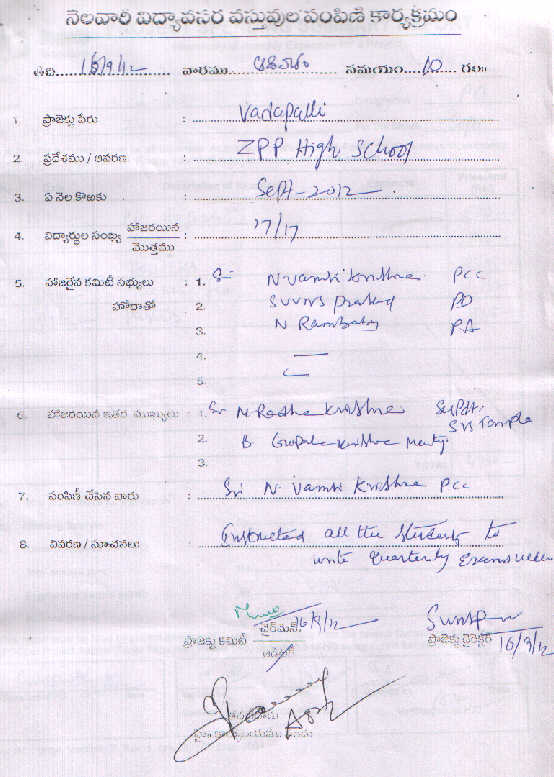 నెలవారి విద్యావసర వస్తువుల పంపిణి కార్యక్రమం
తేది.... 16/9/12 వారము.... సమయం....10 గం॥
1. ప్రాజెక్టు పేరు : Vadapalli
2. ప్రదేశము / ఆవరణ : ZPP High School
3. ఏ నెల కొఱకు : Sept-2012
4. విద్యార్థుల సంఖ్య హాజరయిన / మొత్తము : 17/17
5. హాజరైన కమిటీ సభ్యులు : 1. Sri N Vamsi Krishna PCC
హోదాతో 2. SUVNS Prasad PD
3. N Rambabu PA
4. —
5.
6. హాజరయిన ఇతర ముఖ్యులు : 1. Sri N Radha Krishna Supdt. SVS Temple
2. B Gopala Krishna Murty
3.
7. పంపిణీ చేసిన వారు : Sri N. Vamsi Krishna PCC
8. వివరణ / సూచనలు : Instructed all the Students to
write Quarterly Exams well
16/9/12
ప్రాజెక్టు కమిటీ చైర్మన్ ప్రాజెక్టు డైరెక్టర్ 16/9/12